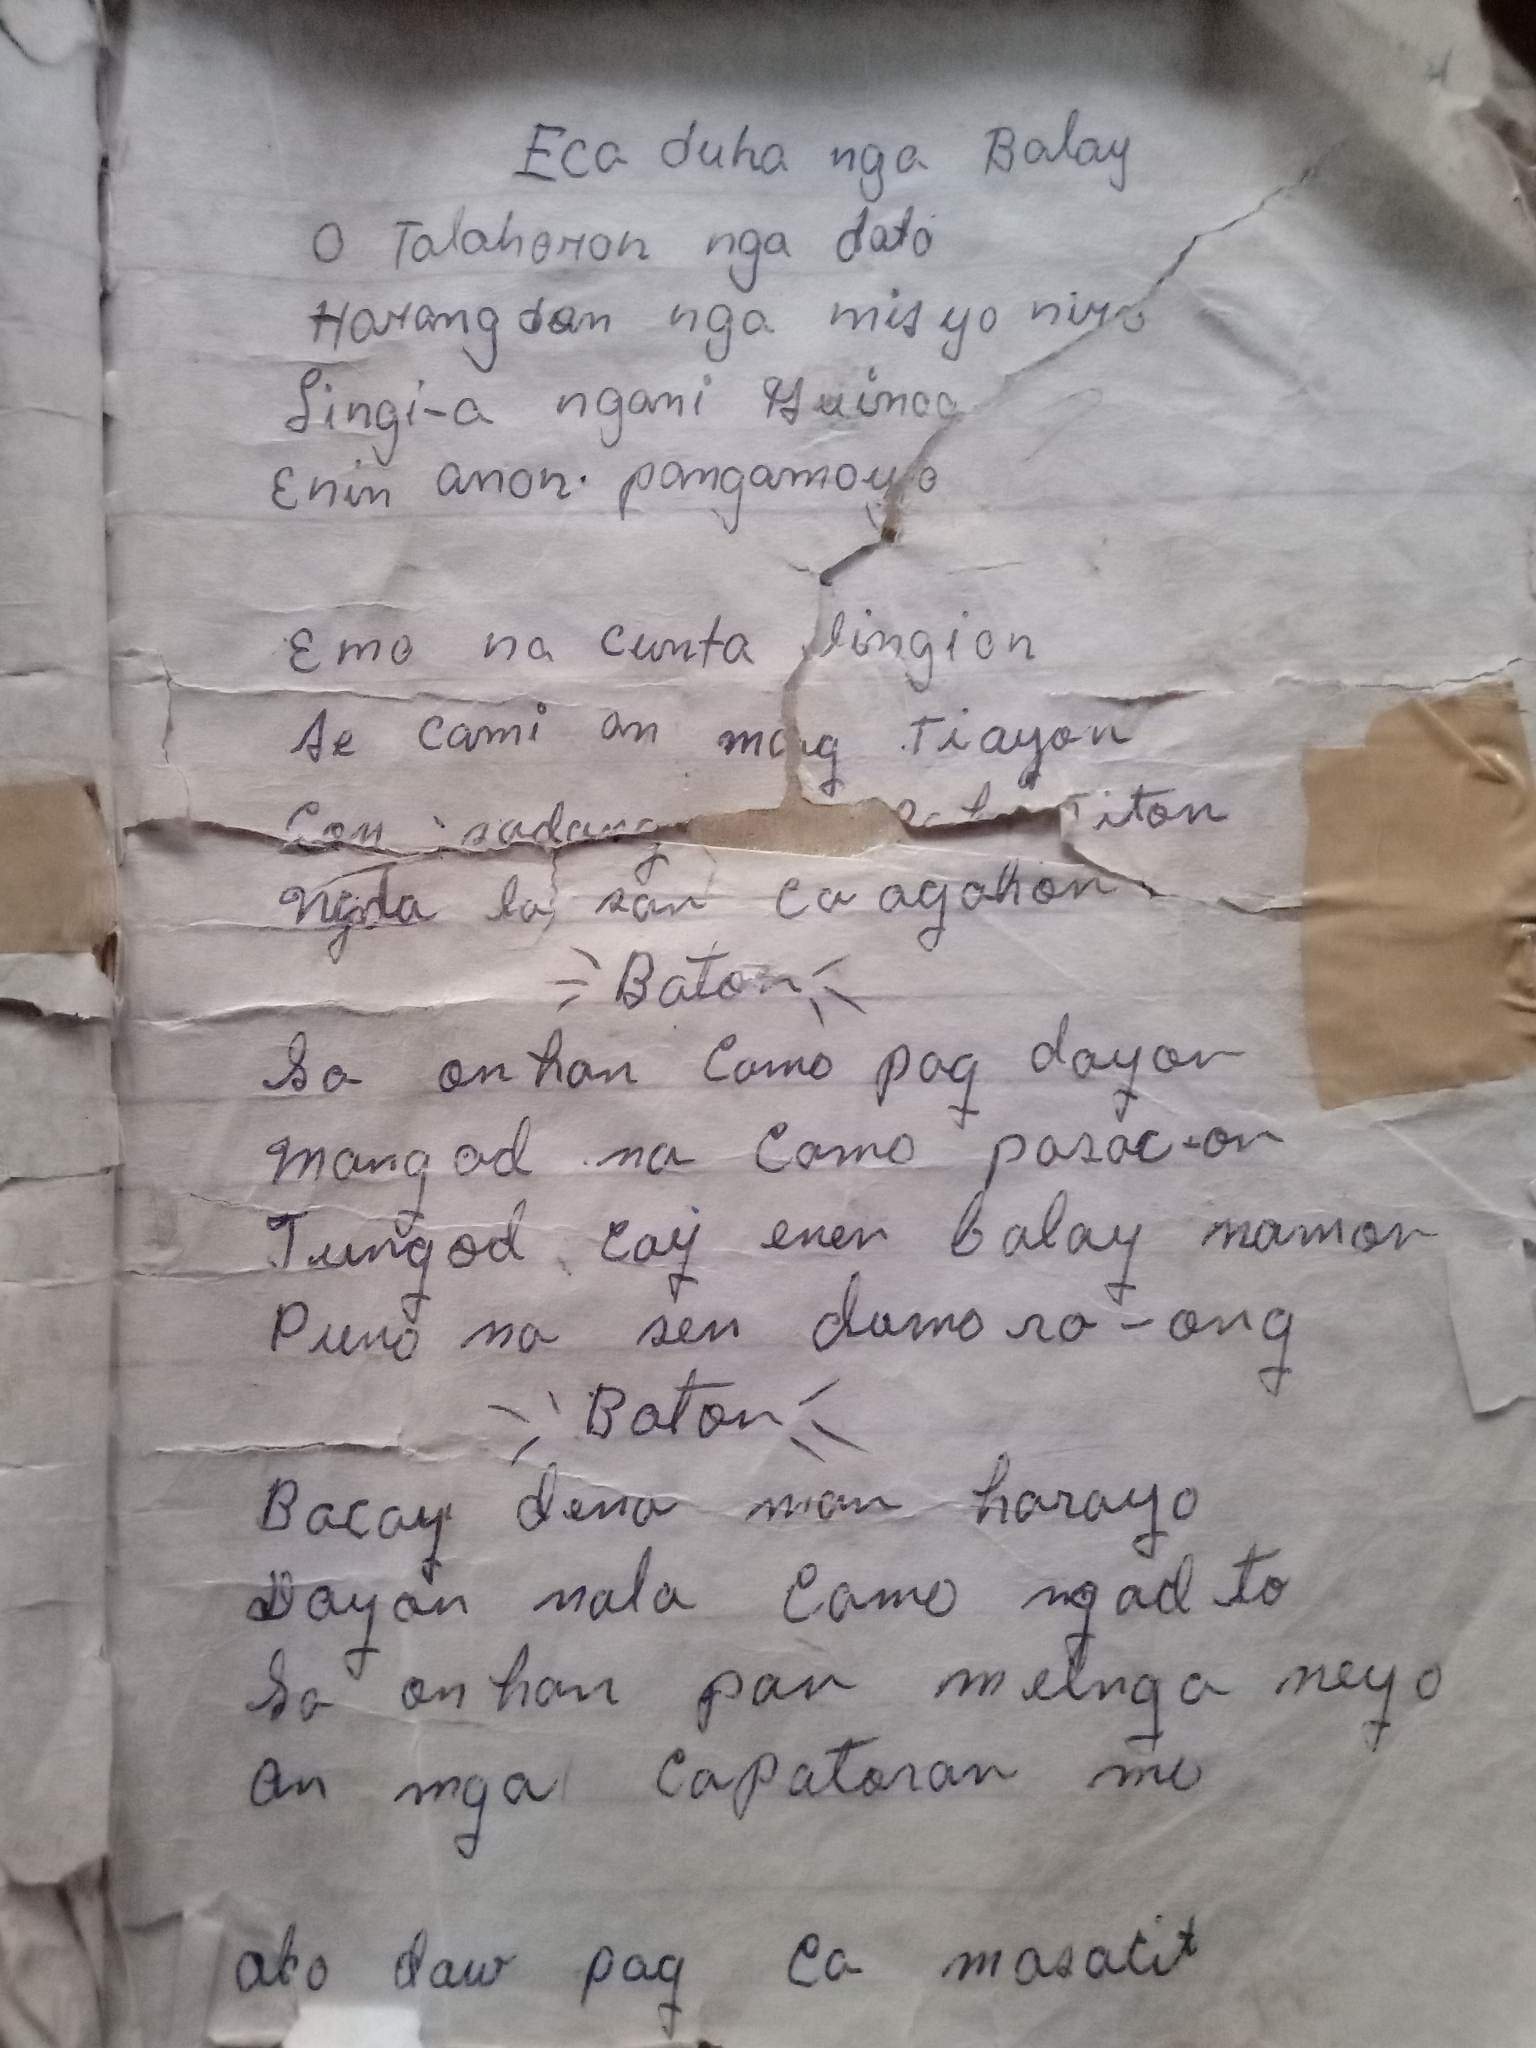 Eca duha nga Balay
O Talahoron nga dato
Harangdan nga misyo niro
Singi-a ngani Guinoo
Enin anon. pangamoyo
Emo na cunta singion
Se cami an mag Tiayon
Con sadang Titon
Ngada la san ca agahon
Baton
Sa onhan Camo pag dayon
Mangad na Camo pasac-on
Tungod cay enen balay namon
Puno na sen damo ra-ong
Baton
Bacay dena man harayo
Dayon nala Camo ngad to
Sa onhan pan meinga neyo
An mga Capatoran mo
ako daw pag ca masacit